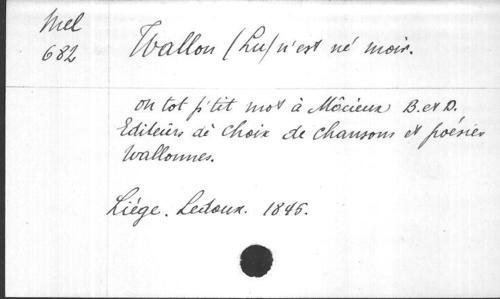 Mel
682
Wallon (Lu) n'est né moir.
on tot p'tit mot à Môcieux B. et D.
Editeûrs dè Choix de chansons et poésies
wallonnes.
Liége. Ledoux. 1846.